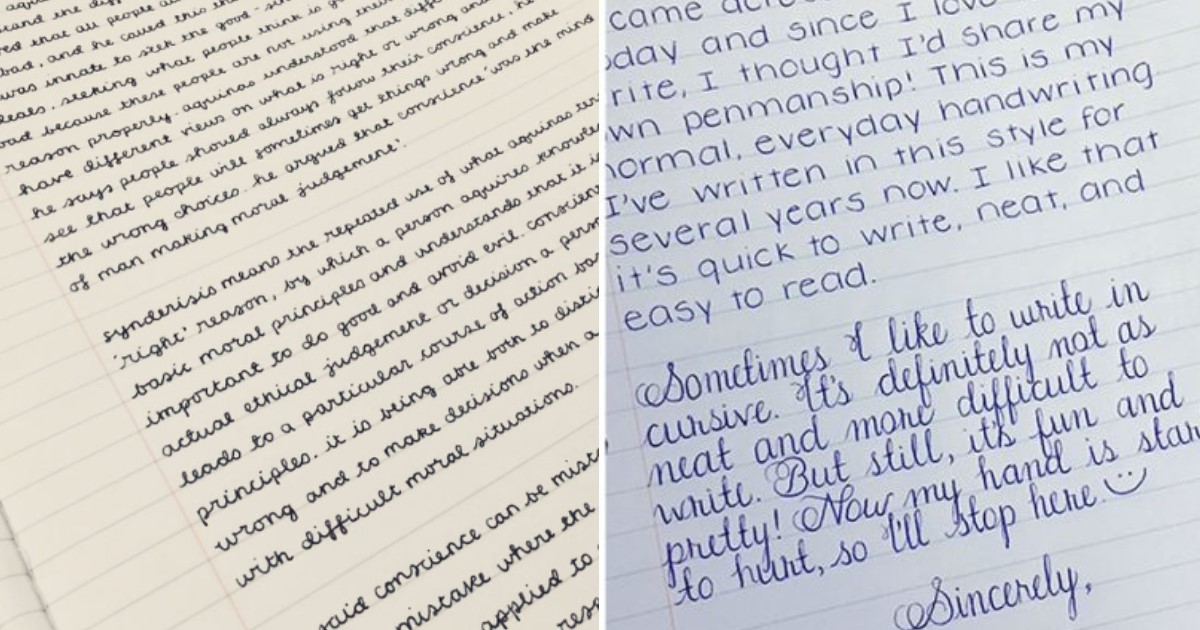 and the diff
that all people a
bad. and he called this th
was innate to seek the good - si
ideals. seeking what people think is g
bad because these people are not using thei
reason properly. aquinas understood that diff
have different views on what is right or wrong an
he says people should always follow their conscience, he
see that people will sometimes get things wrong and make
the wrong choices. he argued that conscience 'was the mind
of man making moral judgement'.
synderisis means the repeated use of what aquinas ter
'right' reason, by which a person aquires knowle
basic moral principles and understands that it is
important to do good and avoid evil. conscien
actual ethical judgement or decision a pers
leads to a particular course of action bas
principles. it is being able both to disti
wrong and to make decisions when a
with difficult moral situations.
said conscience can be mist
mistake where the
applied to
resp
came acro
oday and since I lov
rite, I thought I'd share my
wn penmanship! This is my
normal, everyday handwriting
I've written in this style for
several years now. I like that
it's quick to write, neat, and
easy to read.
Sometimes I like to write in
cursive. It's definitely not as
neat and more difficult to
write. But still, it's fun and
pretty! Now my hand is star
to hurt, so I'll stop here.
Sincerely,